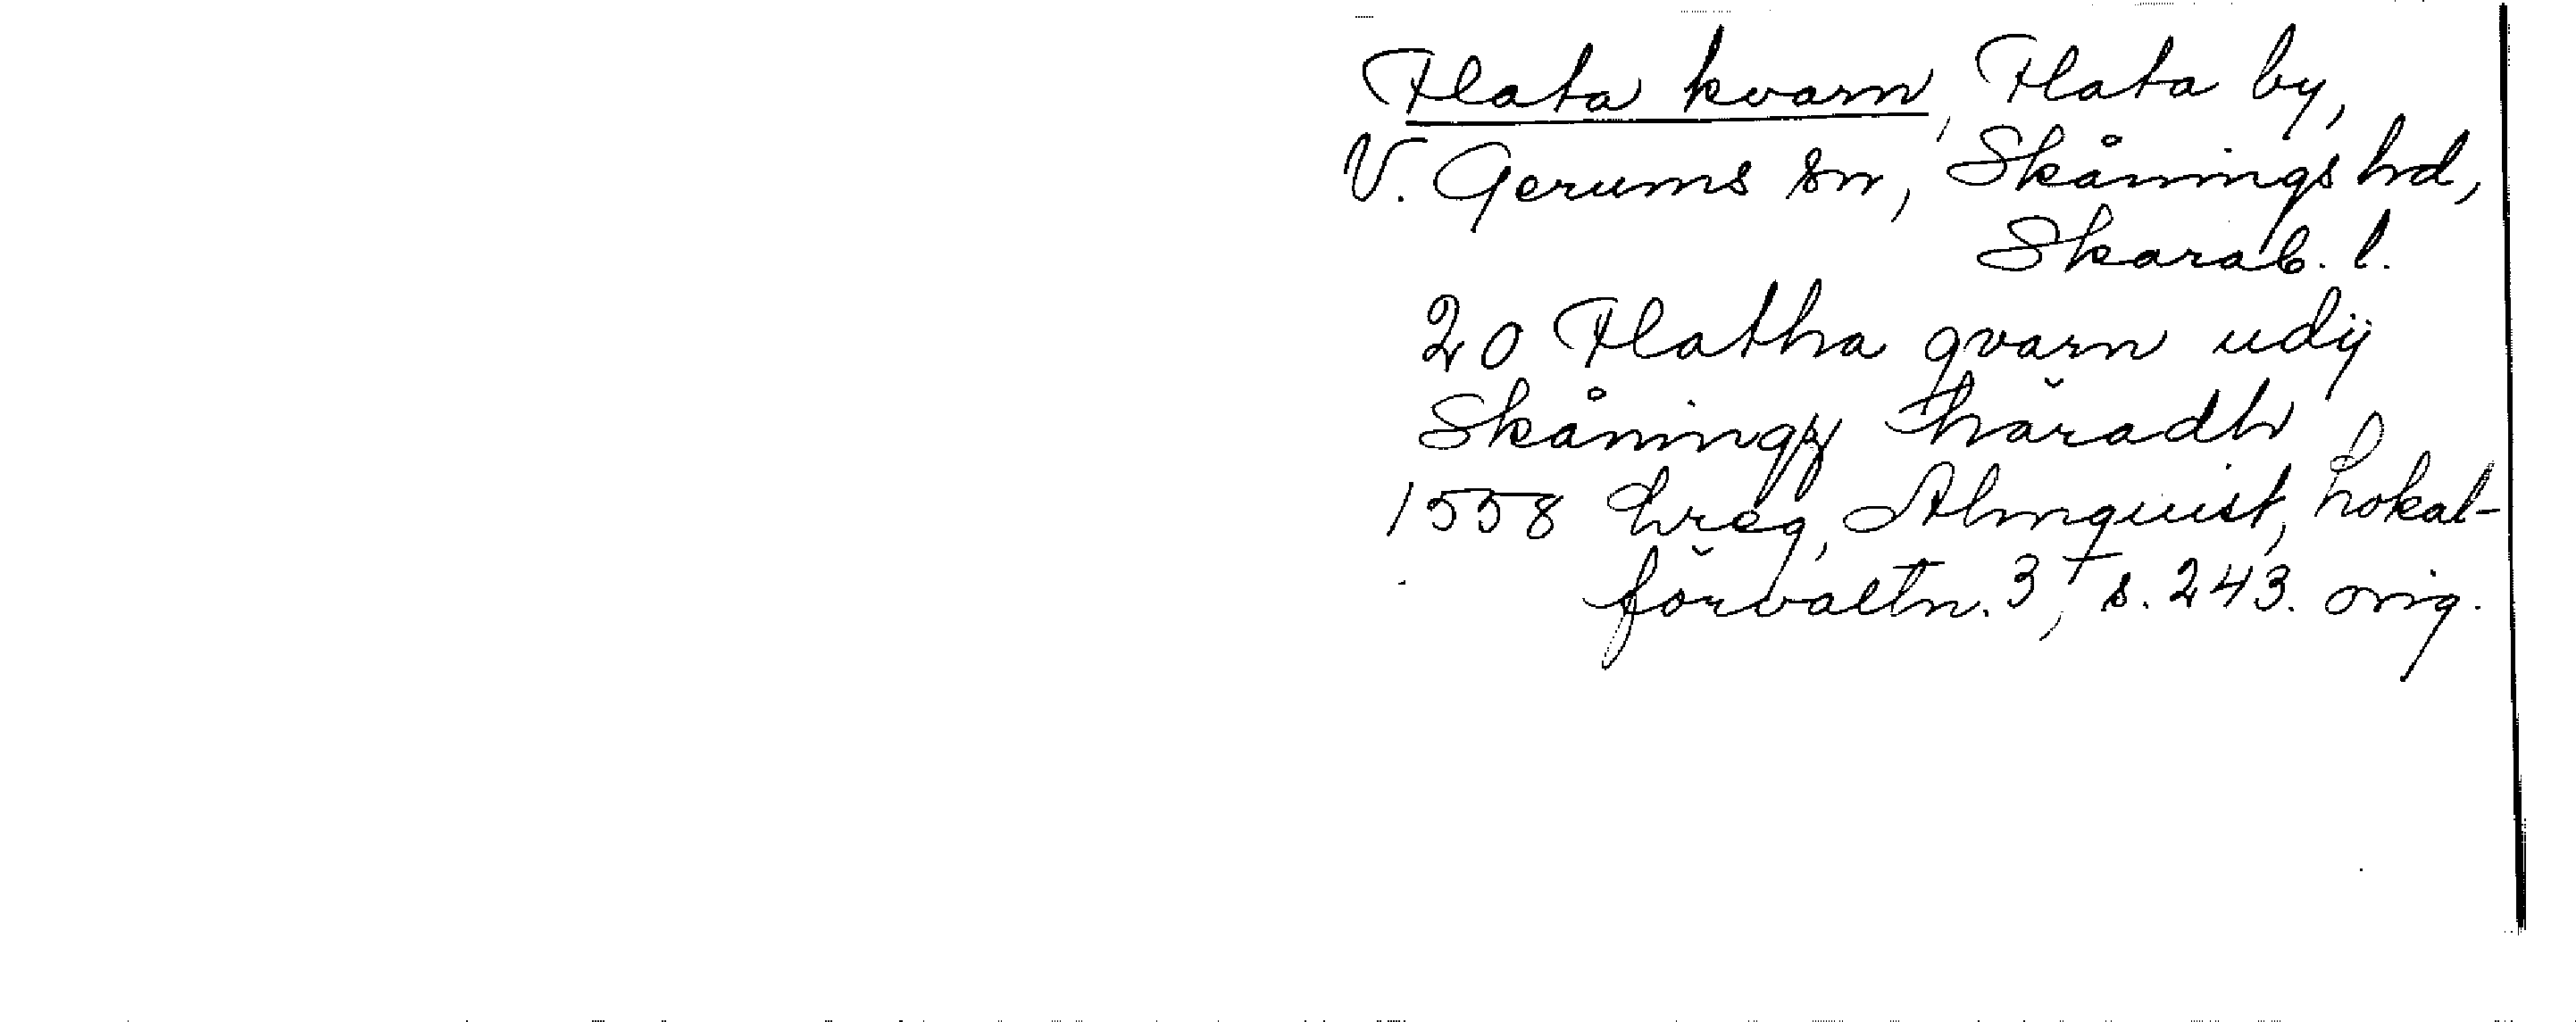 Flata kvarn, Flata by,
V. Gerums sn, Skånings hd,
Skarab. l.
20 Flatha qvarn udij
Skåningz häradh
1558 Lreg, Almquist, Lokal-
förvaltn. 3, s. 243. orig.